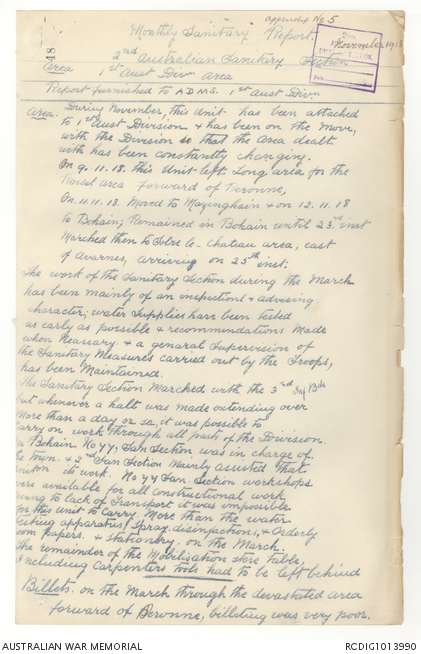 appendix No 5
Monthly Sanitary Report
November 1918
2nd Australian Sanitary Section
Area 1st Aust Divn Area
Report furnished to A.D.M.S. 1st Aust Divn
Area. During November, this Unit has been attached
to 1st Aust Division & has been on the Move,
with the Division so that the Area dealt
with has been constantly changing.
On 9.11.18. this Unit left Long area for the
area forward of Peronne,
On 11.11.18. Moved to Mazinghein & on 12.11.18
to Bohain; Remained in Bohain until 23rd inst
Marched then to Solre le-chateau area, east
of Avesnes, arriving on 25th inst.
The work of the Sanitary Section during the March
has been mainly of an inspectional & advising
character; water supplies have been tested
as early as possible & recommendations made
when necessary & a general Supervision of
the Sanitary Measures carried out by the Troops,
has been Maintained.
The Sanitary Section Marched with the 3rd Inf Bde
but whenever a halt was made extending over
More than a day or so, it was possible to
carry on work through all parts of the Division.
In Bohain No 44, San Section was in charge of
the town. & 2nd San Section Mainly assisted that
its work. No 44 San Section workshops
were available for all constructional work
owing to lack of transport it was impossible
for this unit to carry More than the water
testing apparatus, spray disinfections, & Orderly
room papers & stationery. on the March.
The remainder of the Mobilisation store table,
including Carpenters tools had to be left behind
Billets, on the March through the devastated area
forward of Peronne, billeting was very poor.
AUSTRALIAN WAR MEMORIAL
RCDIG1013990